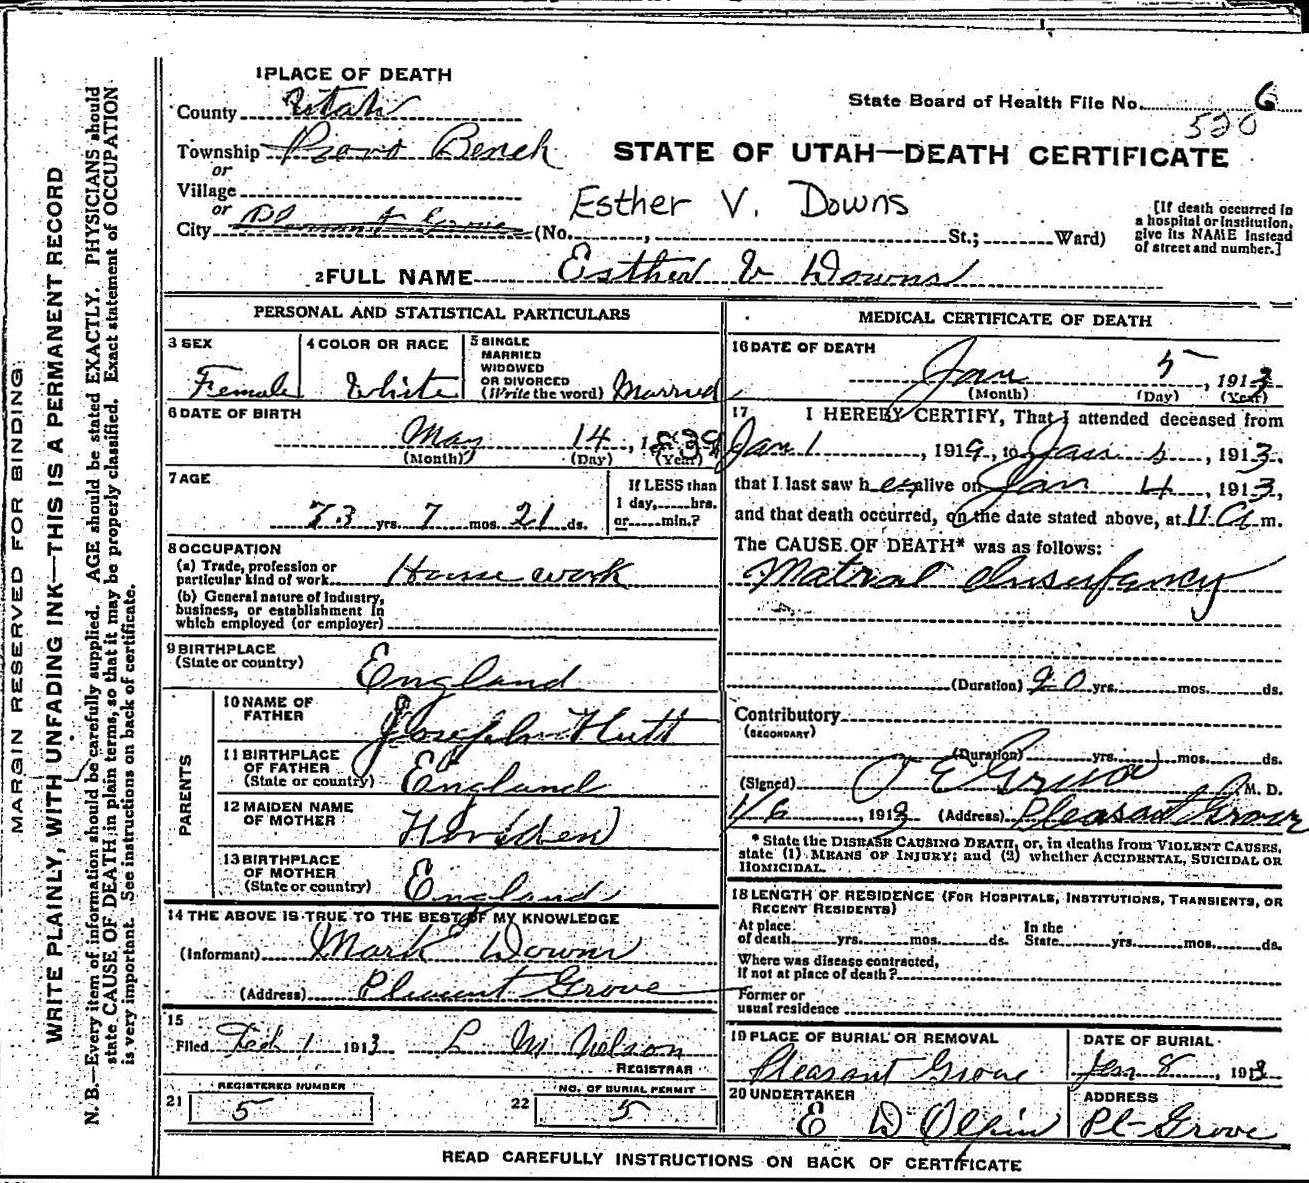 1 PLACE OF DEATH
County Utah
State Board of Health File No. 6
520
Township Provo Bench
or
STATE OF UTAH—DEATH CERTIFICATE
Village
or
Esther V. Downs
City Pleasant Grove (No. , St.; Ward)
[If death occurred in
a hospital or institution,
give its NAME instead
of street and number.]
2 FULL NAME Esther V Downs
PERSONAL AND STATISTICAL PARTICULARS
3 SEX
Female
4 COLOR OR RACE
White
5 SINGLE
MARRIED
WIDOWED
OR DIVORCED
(Write the word) Married
6 DATE OF BIRTH
May 14, 1839
(Month) (Day) (Year)
7 AGE
73 yrs. 7 mos. 21 ds.
If LESS than
1 day, hrs.
or min.?
8 OCCUPATION
(a) Trade, profession or
particular kind of work House work
(b) General nature of industry,
business, or establishment in
which employed (or employer)
9 BIRTHPLACE
(State or country) England
PARENTS
10 NAME OF
FATHER Joseph
11 BIRTHPLACE
OF FATHER
(State or country) England
12 MAIDEN NAME
OF MOTHER
13 BIRTHPLACE
OF MOTHER
(State or country) England
14 THE ABOVE IS TRUE TO THE BEST OF MY KNOWLEDGE
(Informant) Mark Downs
(Address) Pleasant Grove
15
Filed Feb 1 1913 L M Nelson
REGISTRAR
21 REGISTERED NUMBER
5
22 NO. OF BURIAL PERMIT
5
MEDICAL CERTIFICATE OF DEATH
16 DATE OF DEATH
Jan 5, 1913
(Month) (Day) (Year)
17 I HEREBY CERTIFY, That I attended deceased from
Jan 1, 191, to Jan 5, 1913,
that I last saw her alive on Jan 4, 1913,
and that death occurred, on the date stated above, at 11 A m.
The CAUSE OF DEATH* was as follows:
Matral Insufancy
(Duration) 20 yrs. mos. ds.
Contributory
(SECONDARY)
(Duration) yrs. mos. ds.
(Signed) M. D.
1/6, 1913 (Address) Pleasant Grove
* State the DISEASE CAUSING DEATH, or, in deaths from VIOLENT CAUSES,
state (1) MEANS OF INJURY; and (2) whether ACCIDENTAL, SUICIDAL OR
HOMICIDAL.
18 LENGTH OF RESIDENCE (FOR HOSPITALS, INSTITUTIONS, TRANSIENTS, OR
RECENT RESIDENTS)
At place
of death yrs. mos. ds.
In the
State yrs. mos. ds.
Where was disease contracted,
if not at place of death?
Former or
usual residence
19 PLACE OF BURIAL OR REMOVAL
Pleasant Grove
DATE OF BURIAL
Jan 8, 1913
20 UNDERTAKER
E D Olpin
ADDRESS
Pl- Grove
READ CAREFULLY INSTRUCTIONS ON BACK OF CERTIFICATE
MARGIN RESERVED FOR BINDING
WRITE PLAINLY, WITH UNFADING INK—THIS IS A PERMANENT RECORD
N. B.—Every item of information should be carefully supplied. AGE should be stated EXACTLY. PHYSICIANS should
state CAUSE OF DEATH in plain terms, so that it may be properly classified. Exact statement of OCCUPATION
is very important. See instructions on back of certificate.